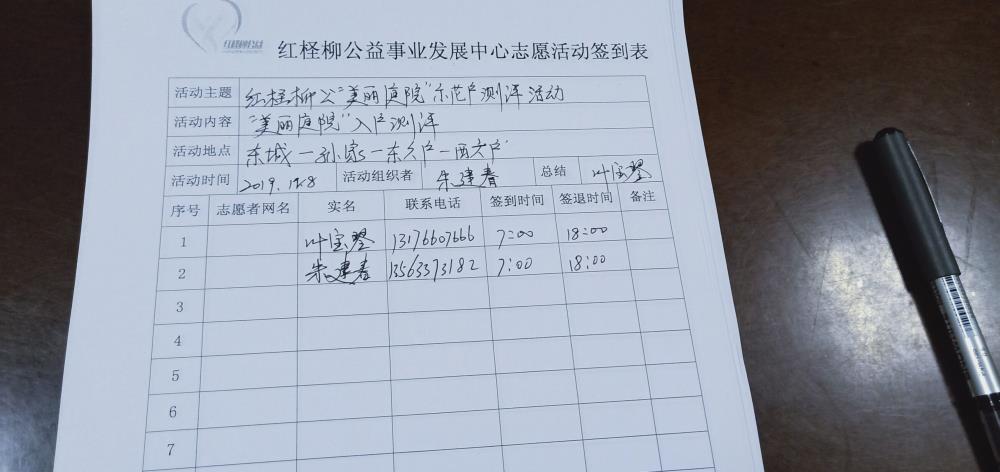 红柽柳公益事业发展中心志愿活动签到表
活动主题 红柽柳公“美丽庭院”示范户测评活动
活动内容 “美丽庭院”入户测评
活动地点 东城一孙家一东六户一西六户
活动时间 2019.12.8 活动组织者 朱建春 总结 叶宝琴
序号 志愿者网名 实名 联系电话 签到时间 签退时间 备注
1 叶宝琴 13176607666 7:00 18:00
2 朱建春 13563373182 7:00 18:00
3
4
5
6
7